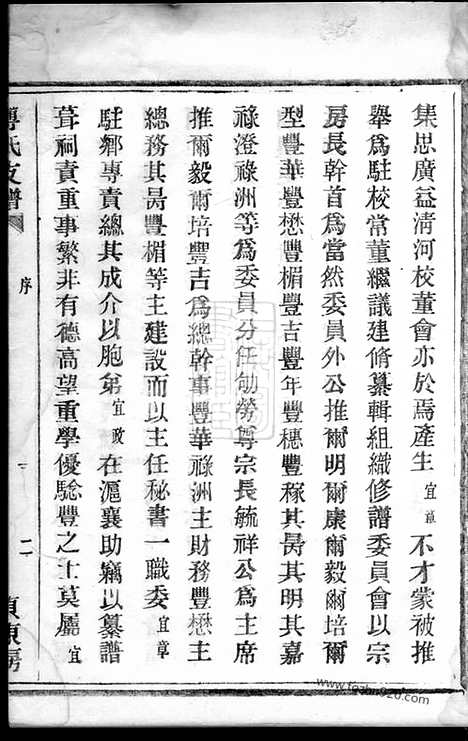 集思廣益淸河校董會亦於焉產生宜章不才蒙被推
舉爲駐校常董繼議建修纂輯組織修譜委員會以宗
房長幹首爲當然委員外公推爾明爾康爾毅爾培爾
型豐華豐懋豐楣豐吉豐年豐穗豐稼其昺其明其嘉
祿澄祿洲等爲委員分任劬勞尊宗長毓祥公爲主席
推爾毅爾培豐吉爲總幹事豐華祿洲主財務豐懋主
總務其昺豐楣等主建設而以主任秘書一職委宜章
駐鄉專責總其成介以胞弟宜政在滬襄助竊以纂譜
葺祠責重事繁非有德高望重學優驗豐之士莫屬宜
氏支譜
序
二
東房